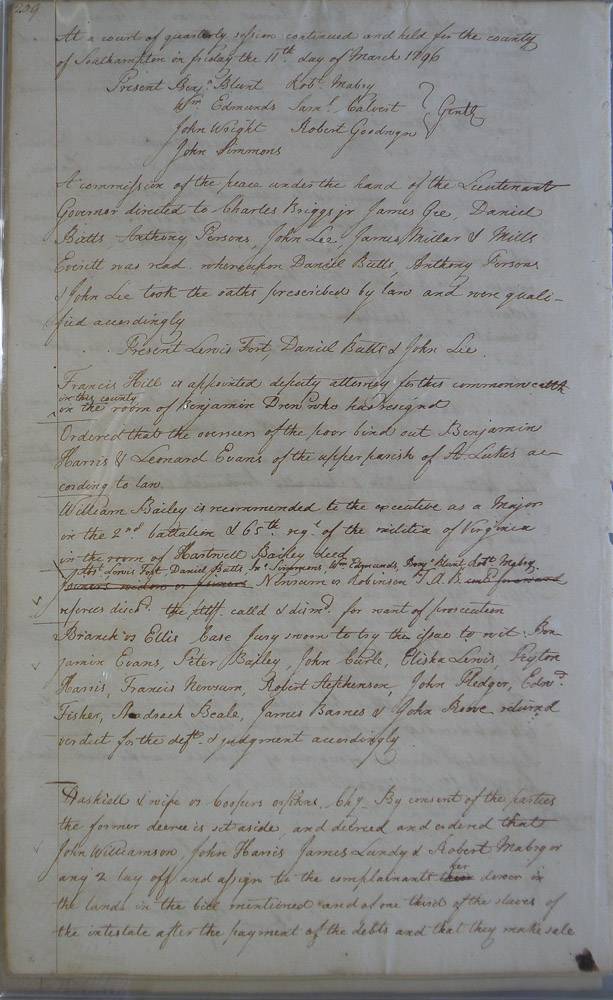 239
At a court of quarterly session continued and held for the county
of Southampton on friday the 11th. day of March 1796
Present Benja. Blunt Robt. Mabry
Wm. Edmunds Saml. Calvert } Gentn
John Wright Robert Goodwyn
John Simmons
A commission of the peace under the hand of the Lieutenant
Governor directed to Charles Briggs jr James Gee, Daniel
Butts Anthony Persons, John Lee, James Millar & Mills
Everitt was read whereupon Daniel Butts, Anthony Persons
& John Lee took the oaths prescribed by law and were quali-
fied accordingly
Present Lewis Fort, Daniel Butts & John Lee.
Francis Hill is appointed deputy attorney for this commonwealth
in this county
in the room of Benjamin Drew who has resignd
Ordered that the overseers of the poor bind out Benjamin
Harris & Leonard Evans of the upper parish of St. Lukes ac-
cording to law.
William Bailey is recommended to the executive as a Major
in the 2nd battalion & 65th. regt. of the militia of Virginia
in the room of Hartwell Bailey decd
Abst. Lewis Fort, Daniel Butts, Jno. Simmons, Wm Edmunds, Benja. Blunt Robt. Mabry.
Newsum vs Robinson
referees discd. the pltff. calld & dismd. for want of prosecution
Branch vs Ellis Case Jury sworn to try the issue to wit. Ben-
jamin Evans, Peter Bailey, John Curle, Elisha Lewis, Peyton
Harris, Francis Newsum, Robert Stephenson, John Pledger, Edwd.
Fisher, Shadrach Beale, James Barnes & John Rowe returnd
verdict for the deft. & judgment accordingly
Haskiell & wife vs Coopers orphans, Chy. By consent of the parties
the former decree is set aside, and decreed and ordered that
John Williamson, John Harris James Lundy & Robert Mabry or
any 2 lay off and assign to the complainants her dower in
the lands in the bill mentioned and of one third of the slaves of
the intestate after the payment of the debts and that they make sale